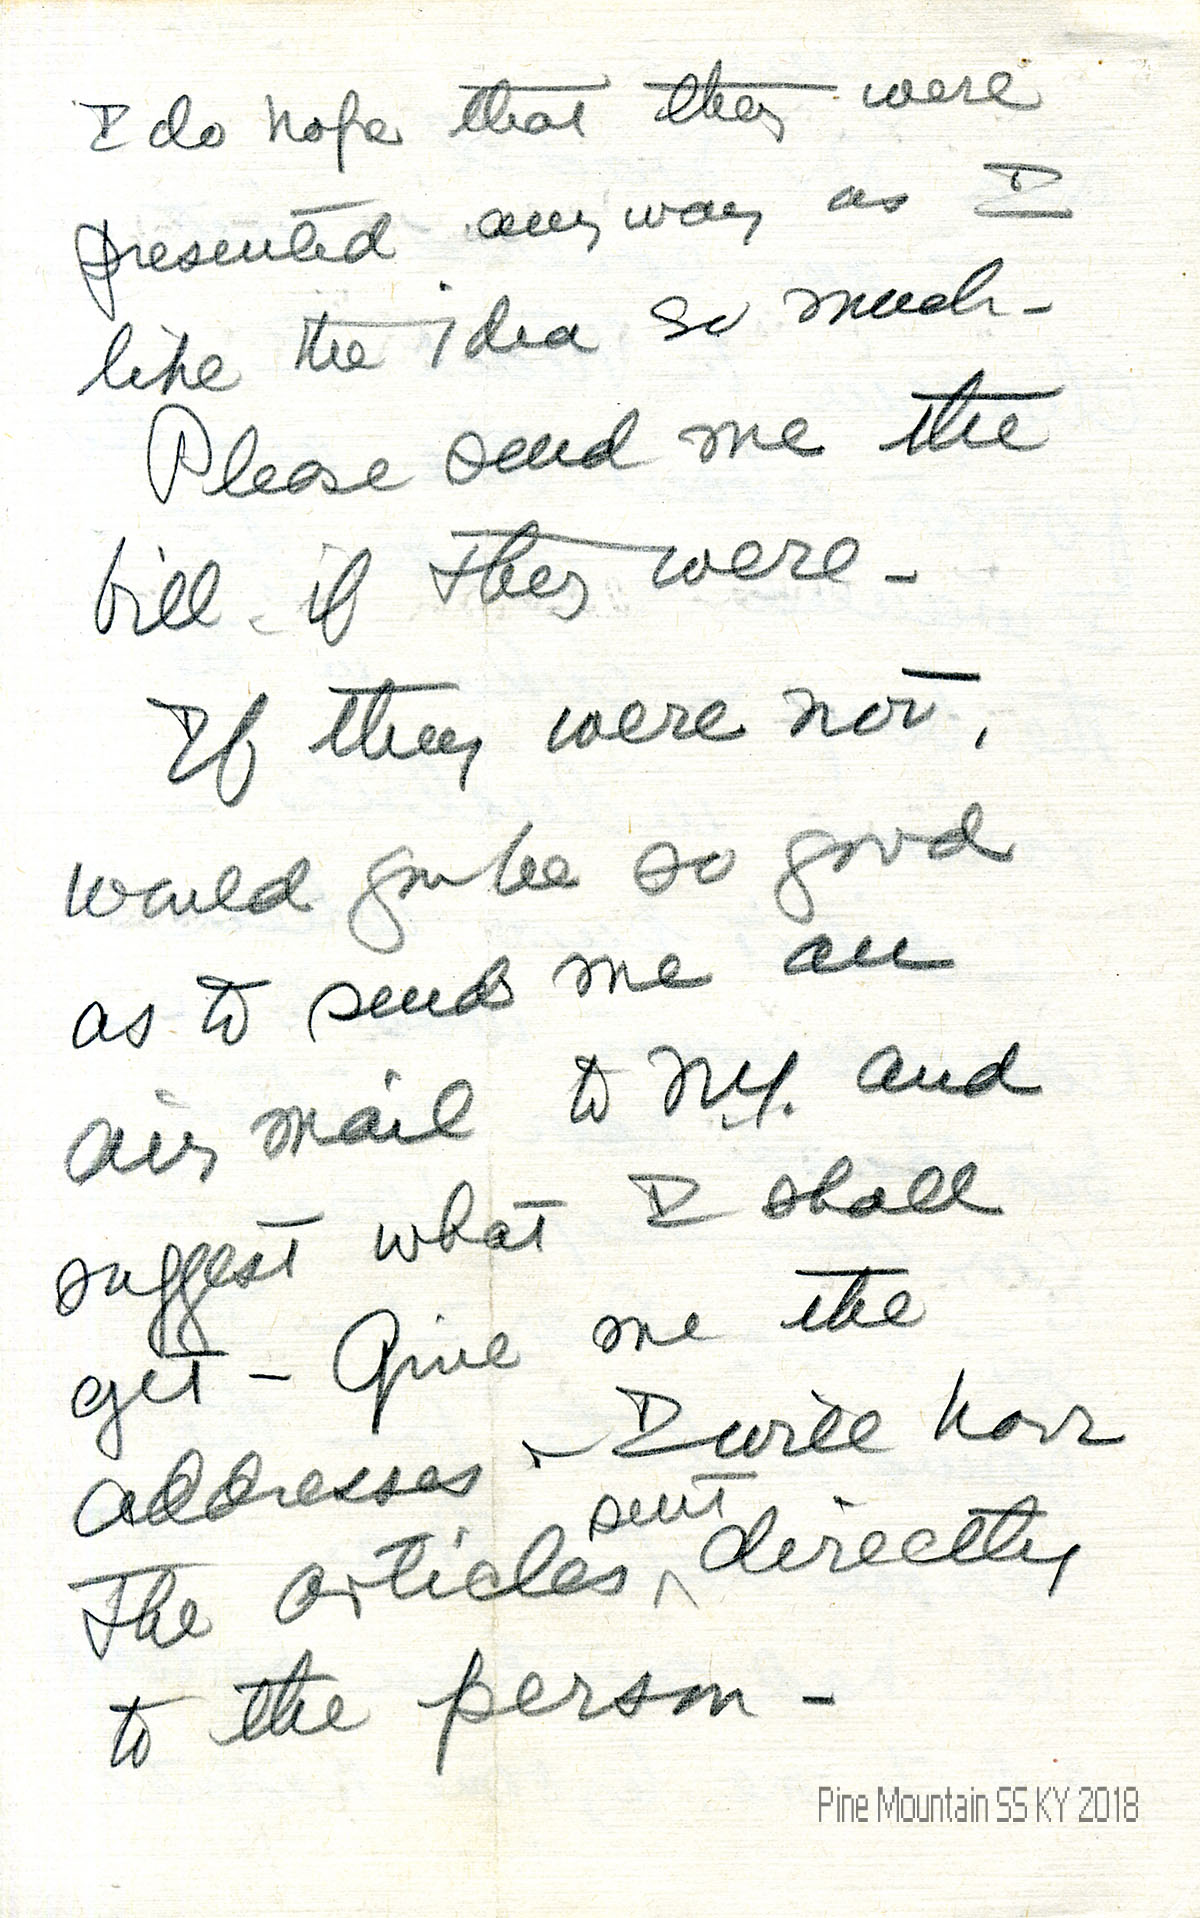 I do hope that they were
presented anyway as I
like the idea so much -
Please send me the
bill - if they were -
If they were not,
would you be so good
as to send me an
air mail to N.Y. and
suggest what I shall
get - Give me the
addresses - I will have
the articles ^ sent directly
to the person -
Pine Mountain SS KY 2018